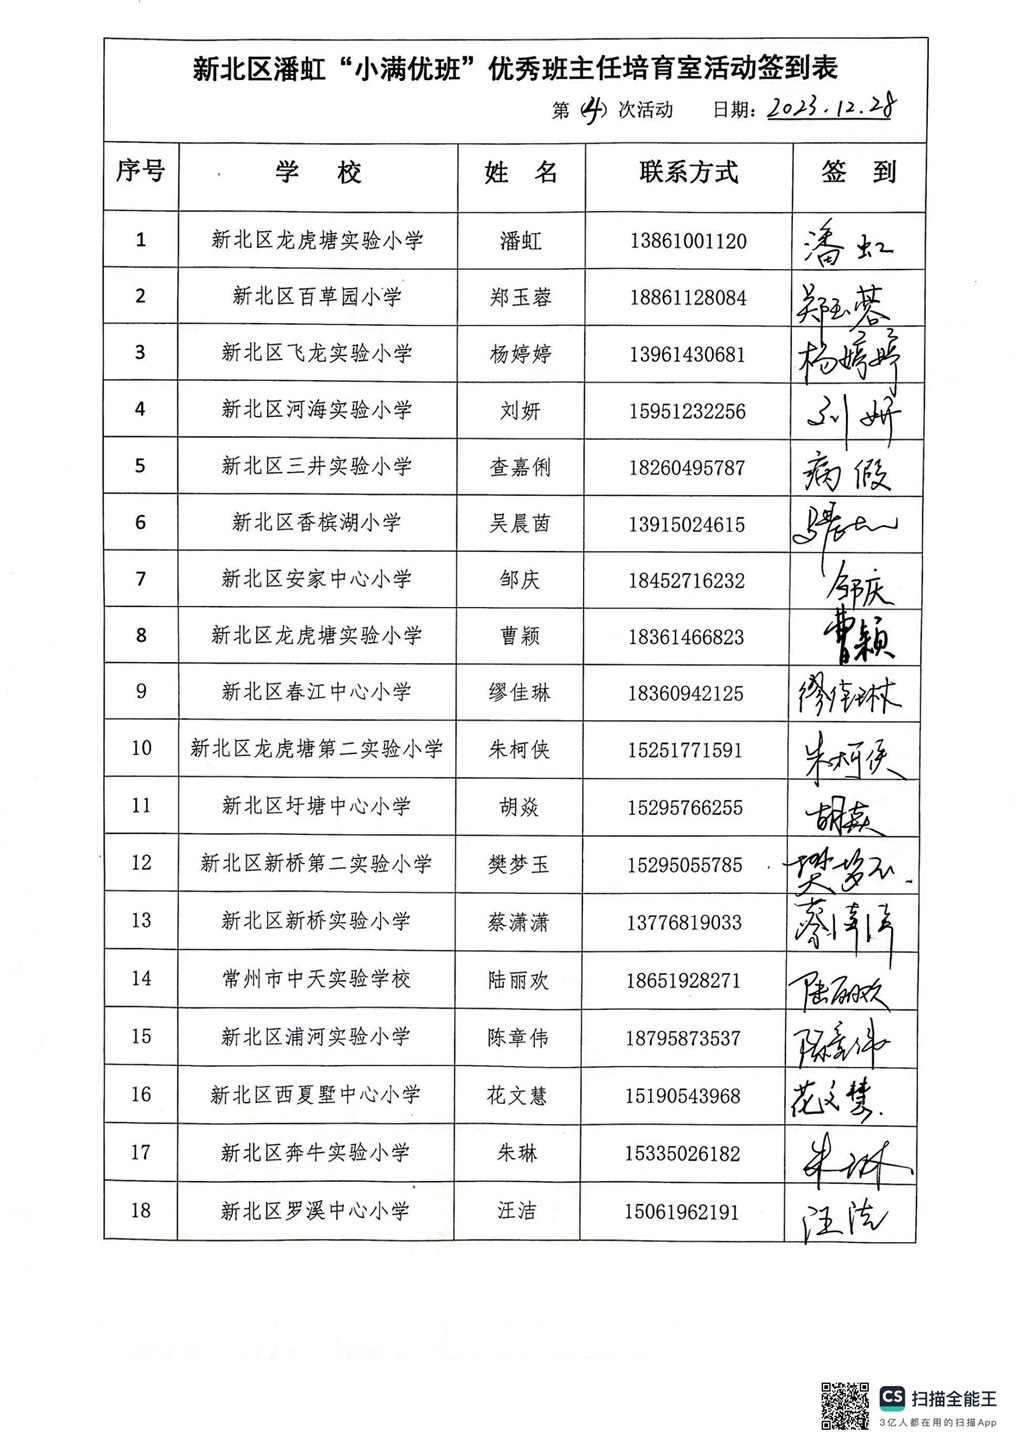 新北区潘虹“小满优班”优秀班主任培育室活动签到表
第（4）次活动 日期：2023.12.28
序号 学 校 姓 名 联系方式 签 到
1 新北区龙虎塘实验小学 潘虹 13861001120 潘虹
2 新北区百草园小学 郑玉蓉 18861128084 郑玉蓉
3 新北区飞龙实验小学 杨婷婷 13961430681 杨婷婷
4 新北区河海实验小学 刘妍 15951232256 刘妍
5 新北区三井实验小学 查嘉俐 18260495787 病假
6 新北区香槟湖小学 吴晨茵 13915024615
7 新北区安家中心小学 邹庆 18452716232 邹庆
8 新北区龙虎塘实验小学 曹颖 18361466823 曹颖
9 新北区春江中心小学 缪佳琳 18360942125 缪佳琳
10 新北区龙虎塘第二实验小学 朱柯侠 15251771591 朱柯侠
11 新北区圩塘中心小学 胡焱 15295766255 胡焱
12 新北区新桥第二实验小学 樊梦玉 15295055785 樊梦玉
13 新北区新桥实验小学 蔡潇潇 13776819033 蔡潇潇
14 常州市中天实验学校 陆丽欢 18651928271 陆丽欢
15 新北区浦河实验小学 陈章伟 18795873537 陈章伟
16 新北区西夏墅中心小学 花文慧 15190543968 花文慧
17 新北区奔牛实验小学 朱琳 15335026182 朱琳
18 新北区罗溪中心小学 汪洁 15061962191 汪洁
CS 扫描全能王
3亿人都在用的扫描App